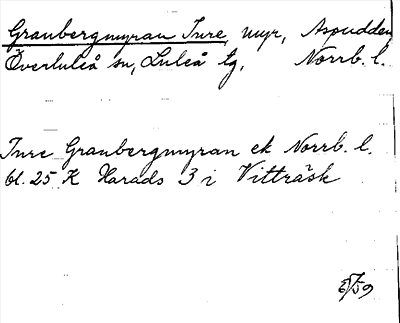 Granbergmyran Inre, myr, Aspudden
Överluleå sn, Luleå tg, Norrb. l.
Inre Granbergmyran ek Norrb. l.
bl. 25 K Harads 3 i Vitträsk